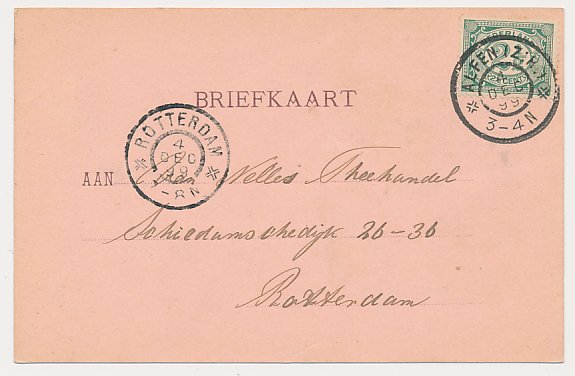 NEDERLAND
ALFEN (Z.H.)
DEC
99
3-4 N
BRIEFKAART
ROTTERDAM
4
DEC
99
-8N
AAN Van Nelle's Theehandel
Schiedamschedijk 26-36
Rotterdam